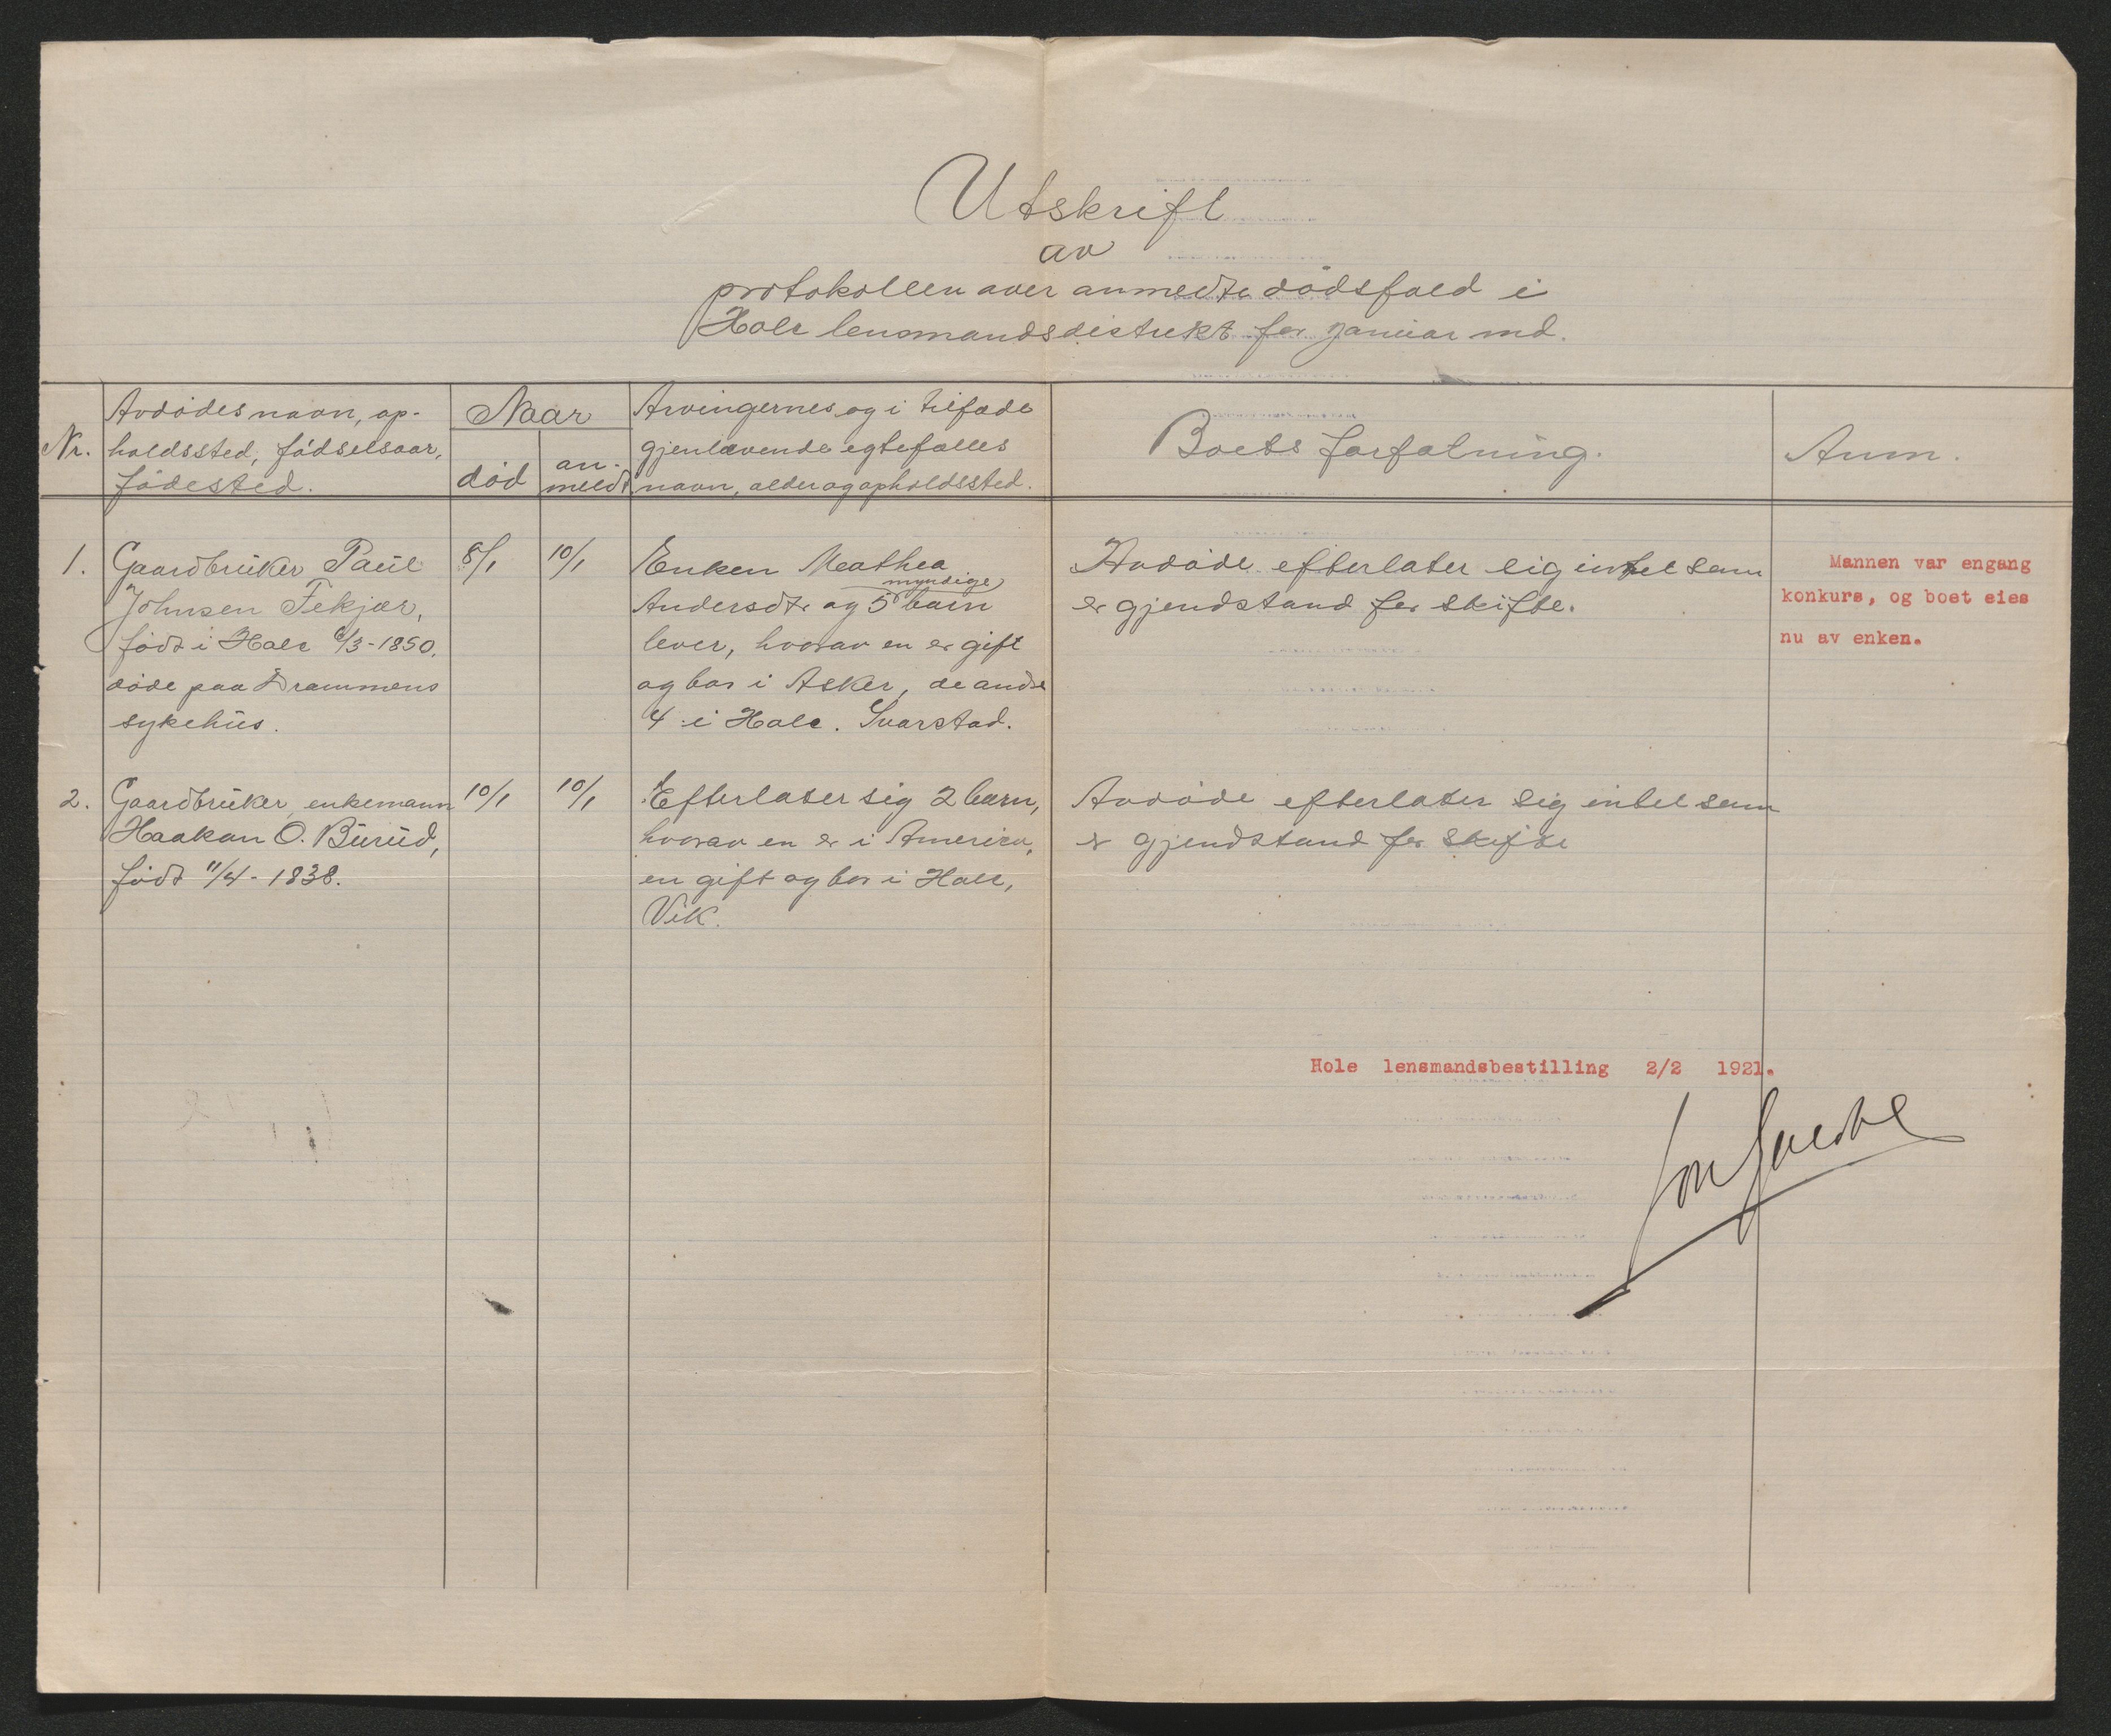 Utskrift
av
protokollen over anmeldte dødsfald i
Hole lensmandsdistrikt for januar md.
Nr.
Avdødes navn, op-
holdssted, fødselsaar,
fødested.
Naar
død
an-
meldt
Arvingernes og i tilfælde
gjenlævende egtefælles
navn, alder og opholdssted.
Boets forfatning.
Anm.
1.
Gaardbruker Paul
Johnsen Fekjær,
født i Hole 6/3-1850.
døde paa Drammens
sykehus.
8/1
10/1
Enken Mathea
myndige
Andersdtr og 5 barn
lever, hvorav en er gift
og bor i Asker, de andre
4 i Hole. Svarstad.
Avdøde efterlater sig intet som
er gjendstand for skifte.
Mannen var engang
konkurs, og boet eies
nu av enken.
2.
Gaardbruker, enkemann
Haakon O. Burud,
født 11/4-1838.
10/1
10/1
Efterlater sig 2 barn,
hvorav en er i America,
en gift og bor i Hole,
Vik.
Avdøde efterlater sig intet som
er gjendstand for skifte
Hole lensmandsbestilling 2/2 1921.